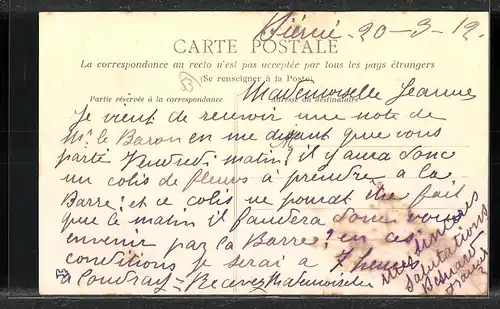 Miérné. 20-3-12.
CARTE POSTALE
La correspondance au recto n'est pas acceptée par tous les pays étrangers
(Se renseigner à la Poste)
Mademoiselle Jeanne
Partie réservée à la correspondance
Adresse du destinataire
Je vient de recevoir une note de
Mr le Baron en me disant que vous
parté Vendredi matin? il y aura donc
un colis de fleurs à prendre a la
Barre; et ce colis ne pourat être fait
que le matin il faudera donc vous
envenir par la Barre? en ces
conditions je serai a 7 heures
a Coudray = Recevez Mademoiselle
mes sincères
salutations
Besnard